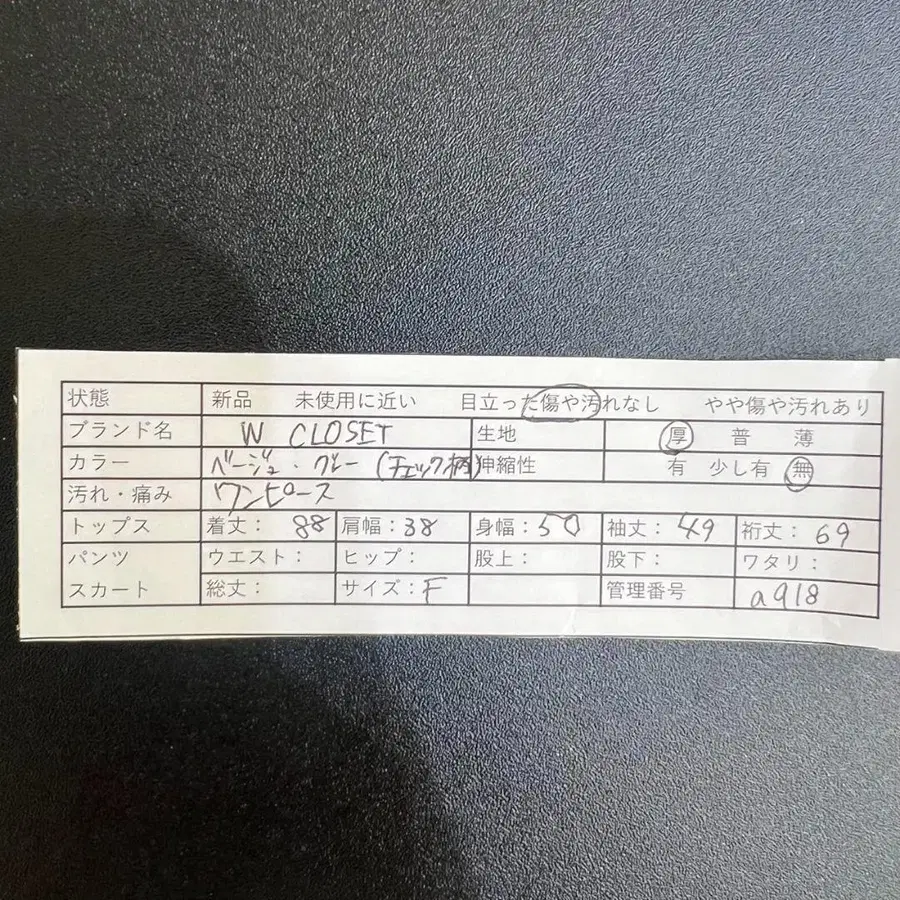 状態 新品 未使用に近い 目立った傷や汚れなし やや傷や汚れあり
ブランド名 W CLOSET 生地 厚 普 薄
カラー ベージュ・グレー (チェック柄) 伸縮性 有 少し有 無
汚れ・痛み ワンピース
トップス 着丈: 88 肩幅:38 身幅:50 袖丈:49 裄丈:69
パンツ ウエスト: ヒップ: 股上: 股下: ワタリ:
スカート 総丈: サイズ:F 管理番号 a918